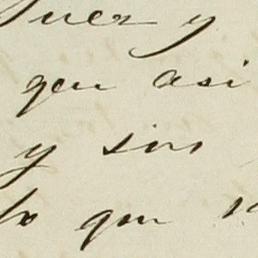 Juez y
que asi
y sin
que